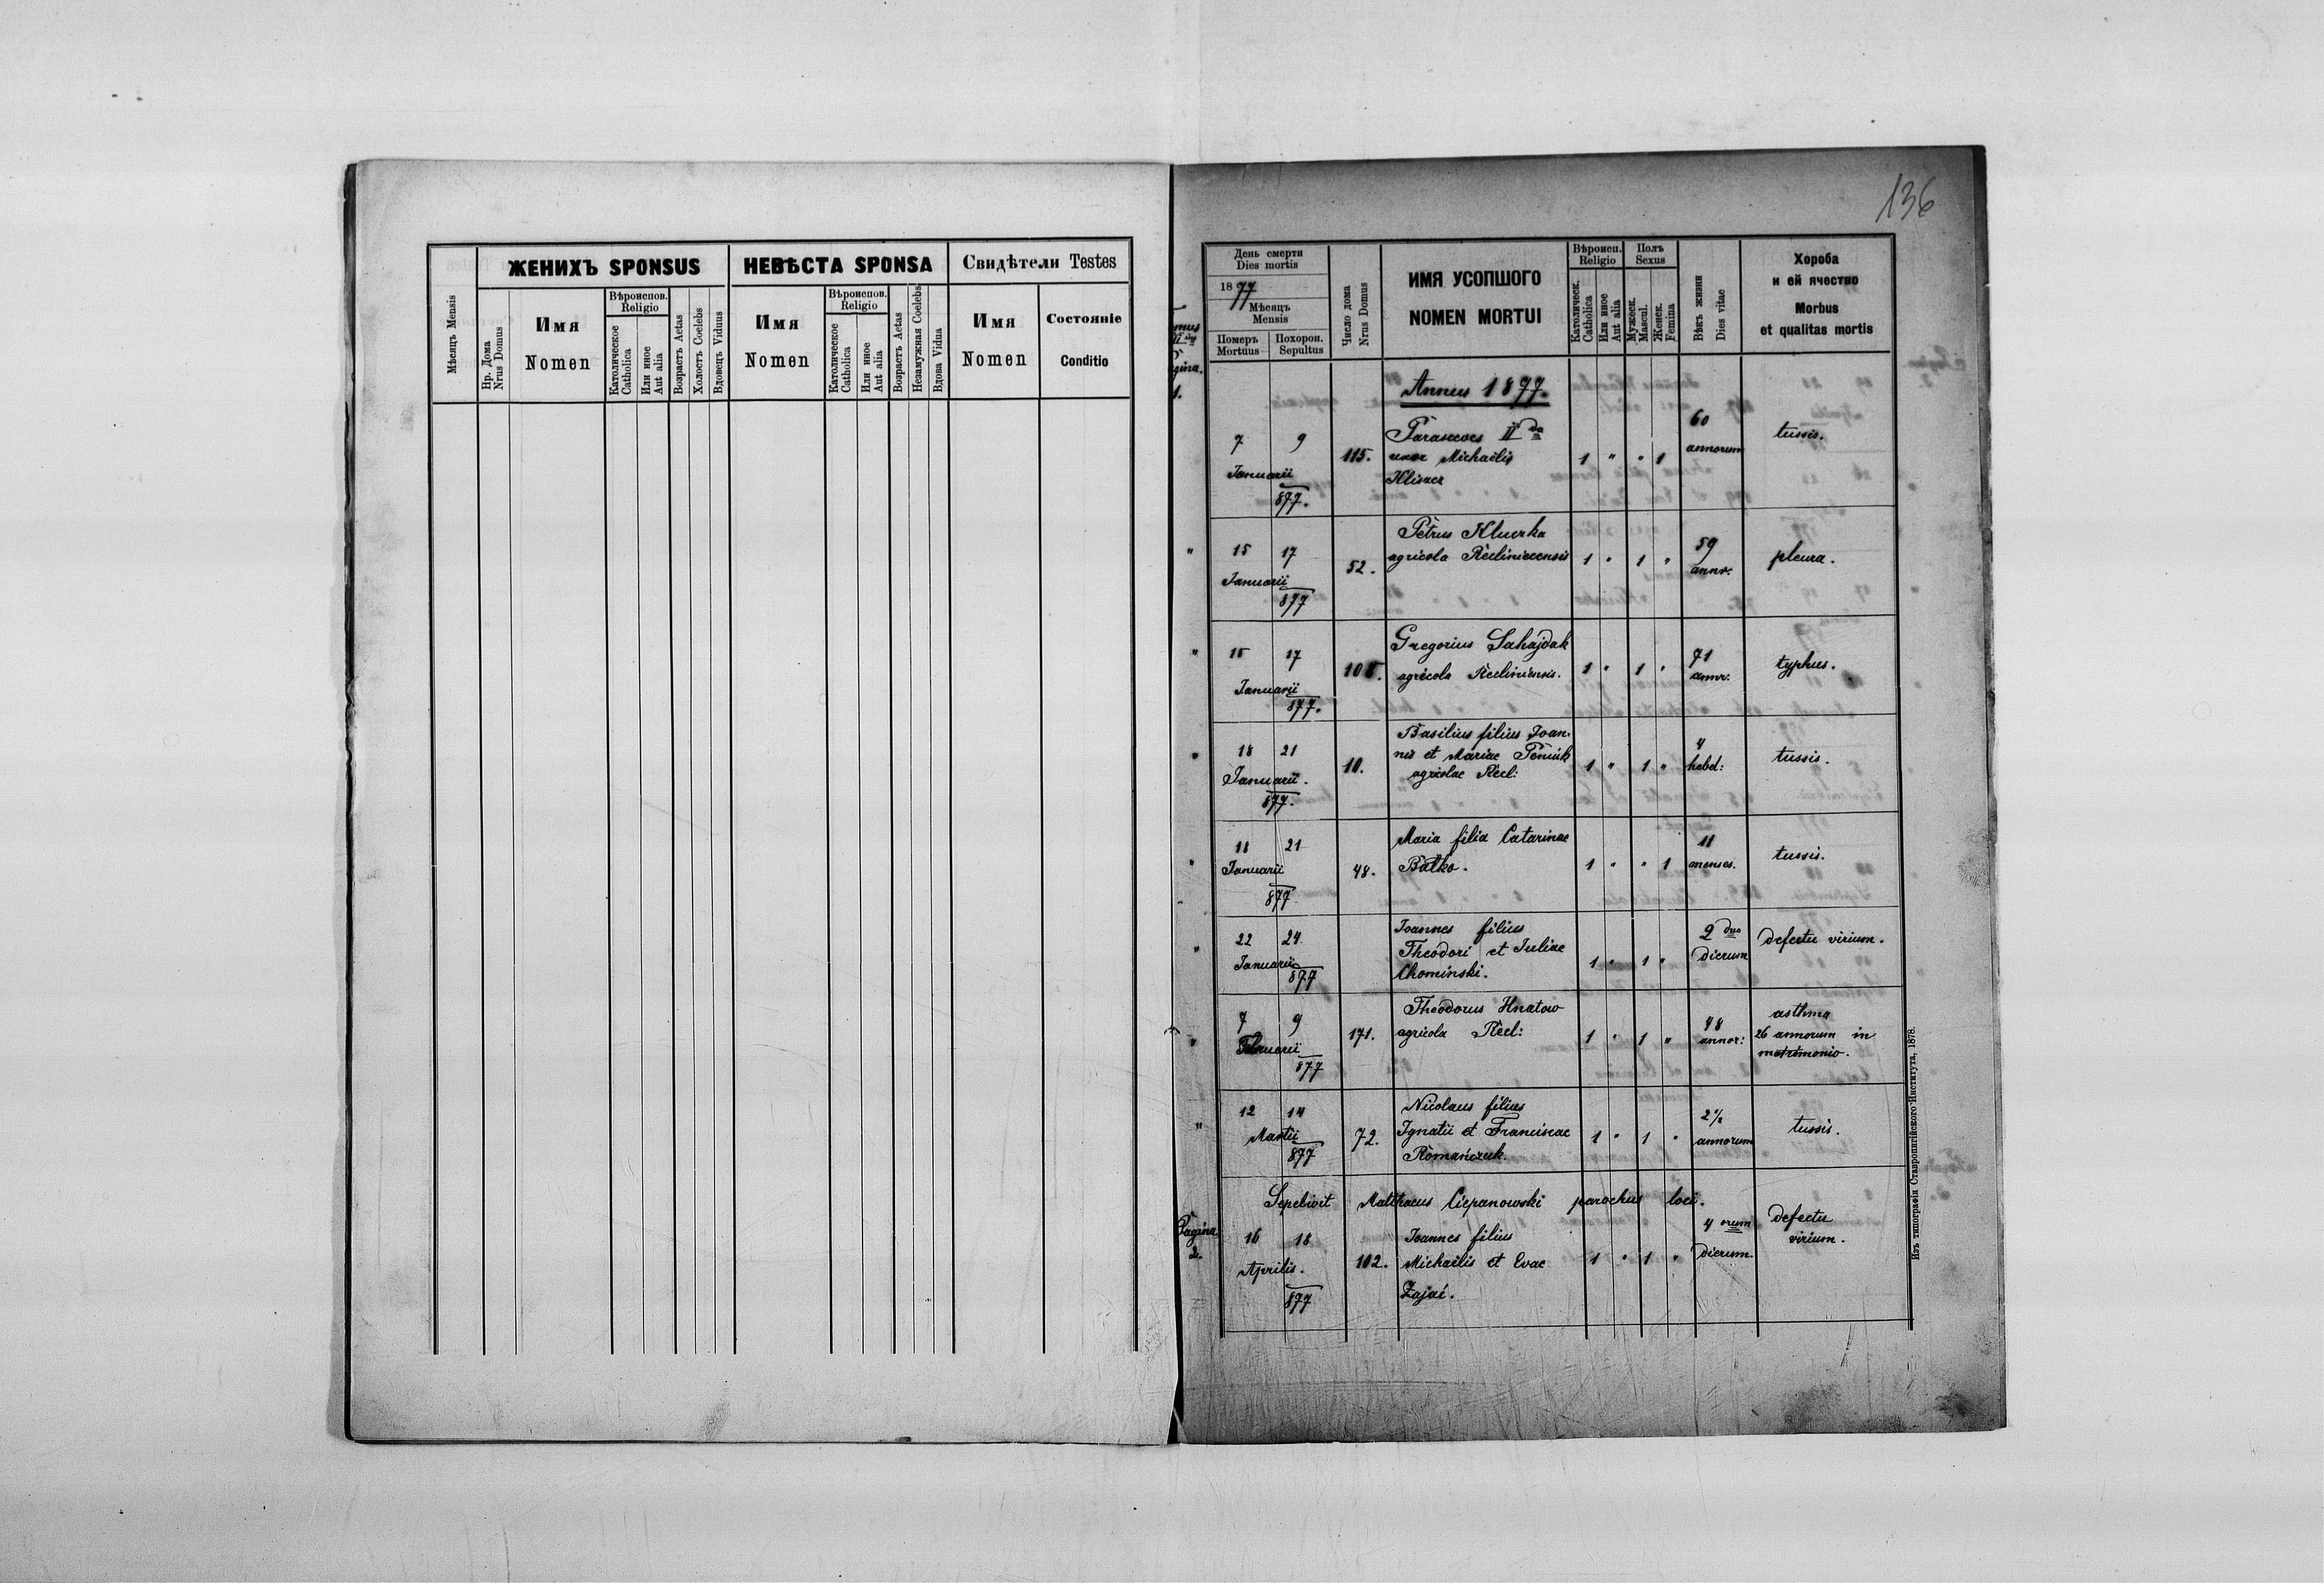 ЖЕНИХЪ SPONSUS
НЕВѢСТА SPONSA
Свидѣтели Testes
Мѣсяцъ Mensis
Нр. Дома
Nrus Domus
Имя
Nomen
Вѣроиспов.
Religio
Католическое
Catholica
Или иное
Aut alia
Возрастъ Aetas
Холостъ Coelebs
Вдовецъ Viduus
Имя
Nomen
Вѣроиспов.
Religio
Католическое
Catholica
Или иное
Aut alia
Возрастъ Aetas
Незамужная Coelebs
Вдова Vidua
Имя
Nomen
Состояніе
Conditio
136
День смерти
Dies mortis
1877
Мѣсяцъ
Mensis
Померъ
Mortuus
Похорон.
Sepultus
Число дома
Nrus Domus
ИМЯ УСОПШОГО
NOMEN MORTUI
Вѣроисп.
Religio
Католическ.
Catholica
Или иное
Aut alia
Полъ
Sexus
Мужеск.
Mascul.
Женск.
Femina
Вѣкъ жизни
Dies vitae
Хороба
и ей ячество
Morbus
et qualitas mortis
Annus 1877.
7 9 Januarii 877. 115. 1 " " 1 60 annorum tussis.
uxor Michaelis
" 15 17 Januarii 877 52. Petrus Kluczka 1 " 1 " 59 annor. pleura.
agricola
" 15 17 Januarii 877. Gregorius Sahajdak 1 " 1 " 71 annor: typhus.
agricola
" 18 21 Januarii. 877. 10. Basilius filius Joan- 1 " 1 " 4 hebd: tussis.
nis et Mariae Peniuk
agricolae Recl:
" 18 21 Januarii 877 48. Maria filia Catarinae 1 " " 1 11 menses. tussis.
Batko.
" 22 24 Januarii 877 Joannes filius 1 " 1 " 2 duo dierum defectu virium.
Theodori et Juliae
Chominski.
" 7 9 Februarii 877 171. Theodorus Hnatow 1 " 1 " 48 annor: asthma
agricola Recl: 26 annorum in
matrimonio.
" 12 14 Martii 877 72. Nicolaus filius 1 " 1 " 2½ annorum tussis.
Ignatii et Franciscae
Romańczuk.
Sepelivit Matthaeus Ciepanowski parochus loci.
Pagina 2. 16 18 Aprilis. 877 102. Joannes filius 1 " 1 " 4 orum dierum. defectu
Michaelis et Evae virium.
Zajać.
Изъ типографіи Ставропигійского Института, 1878.